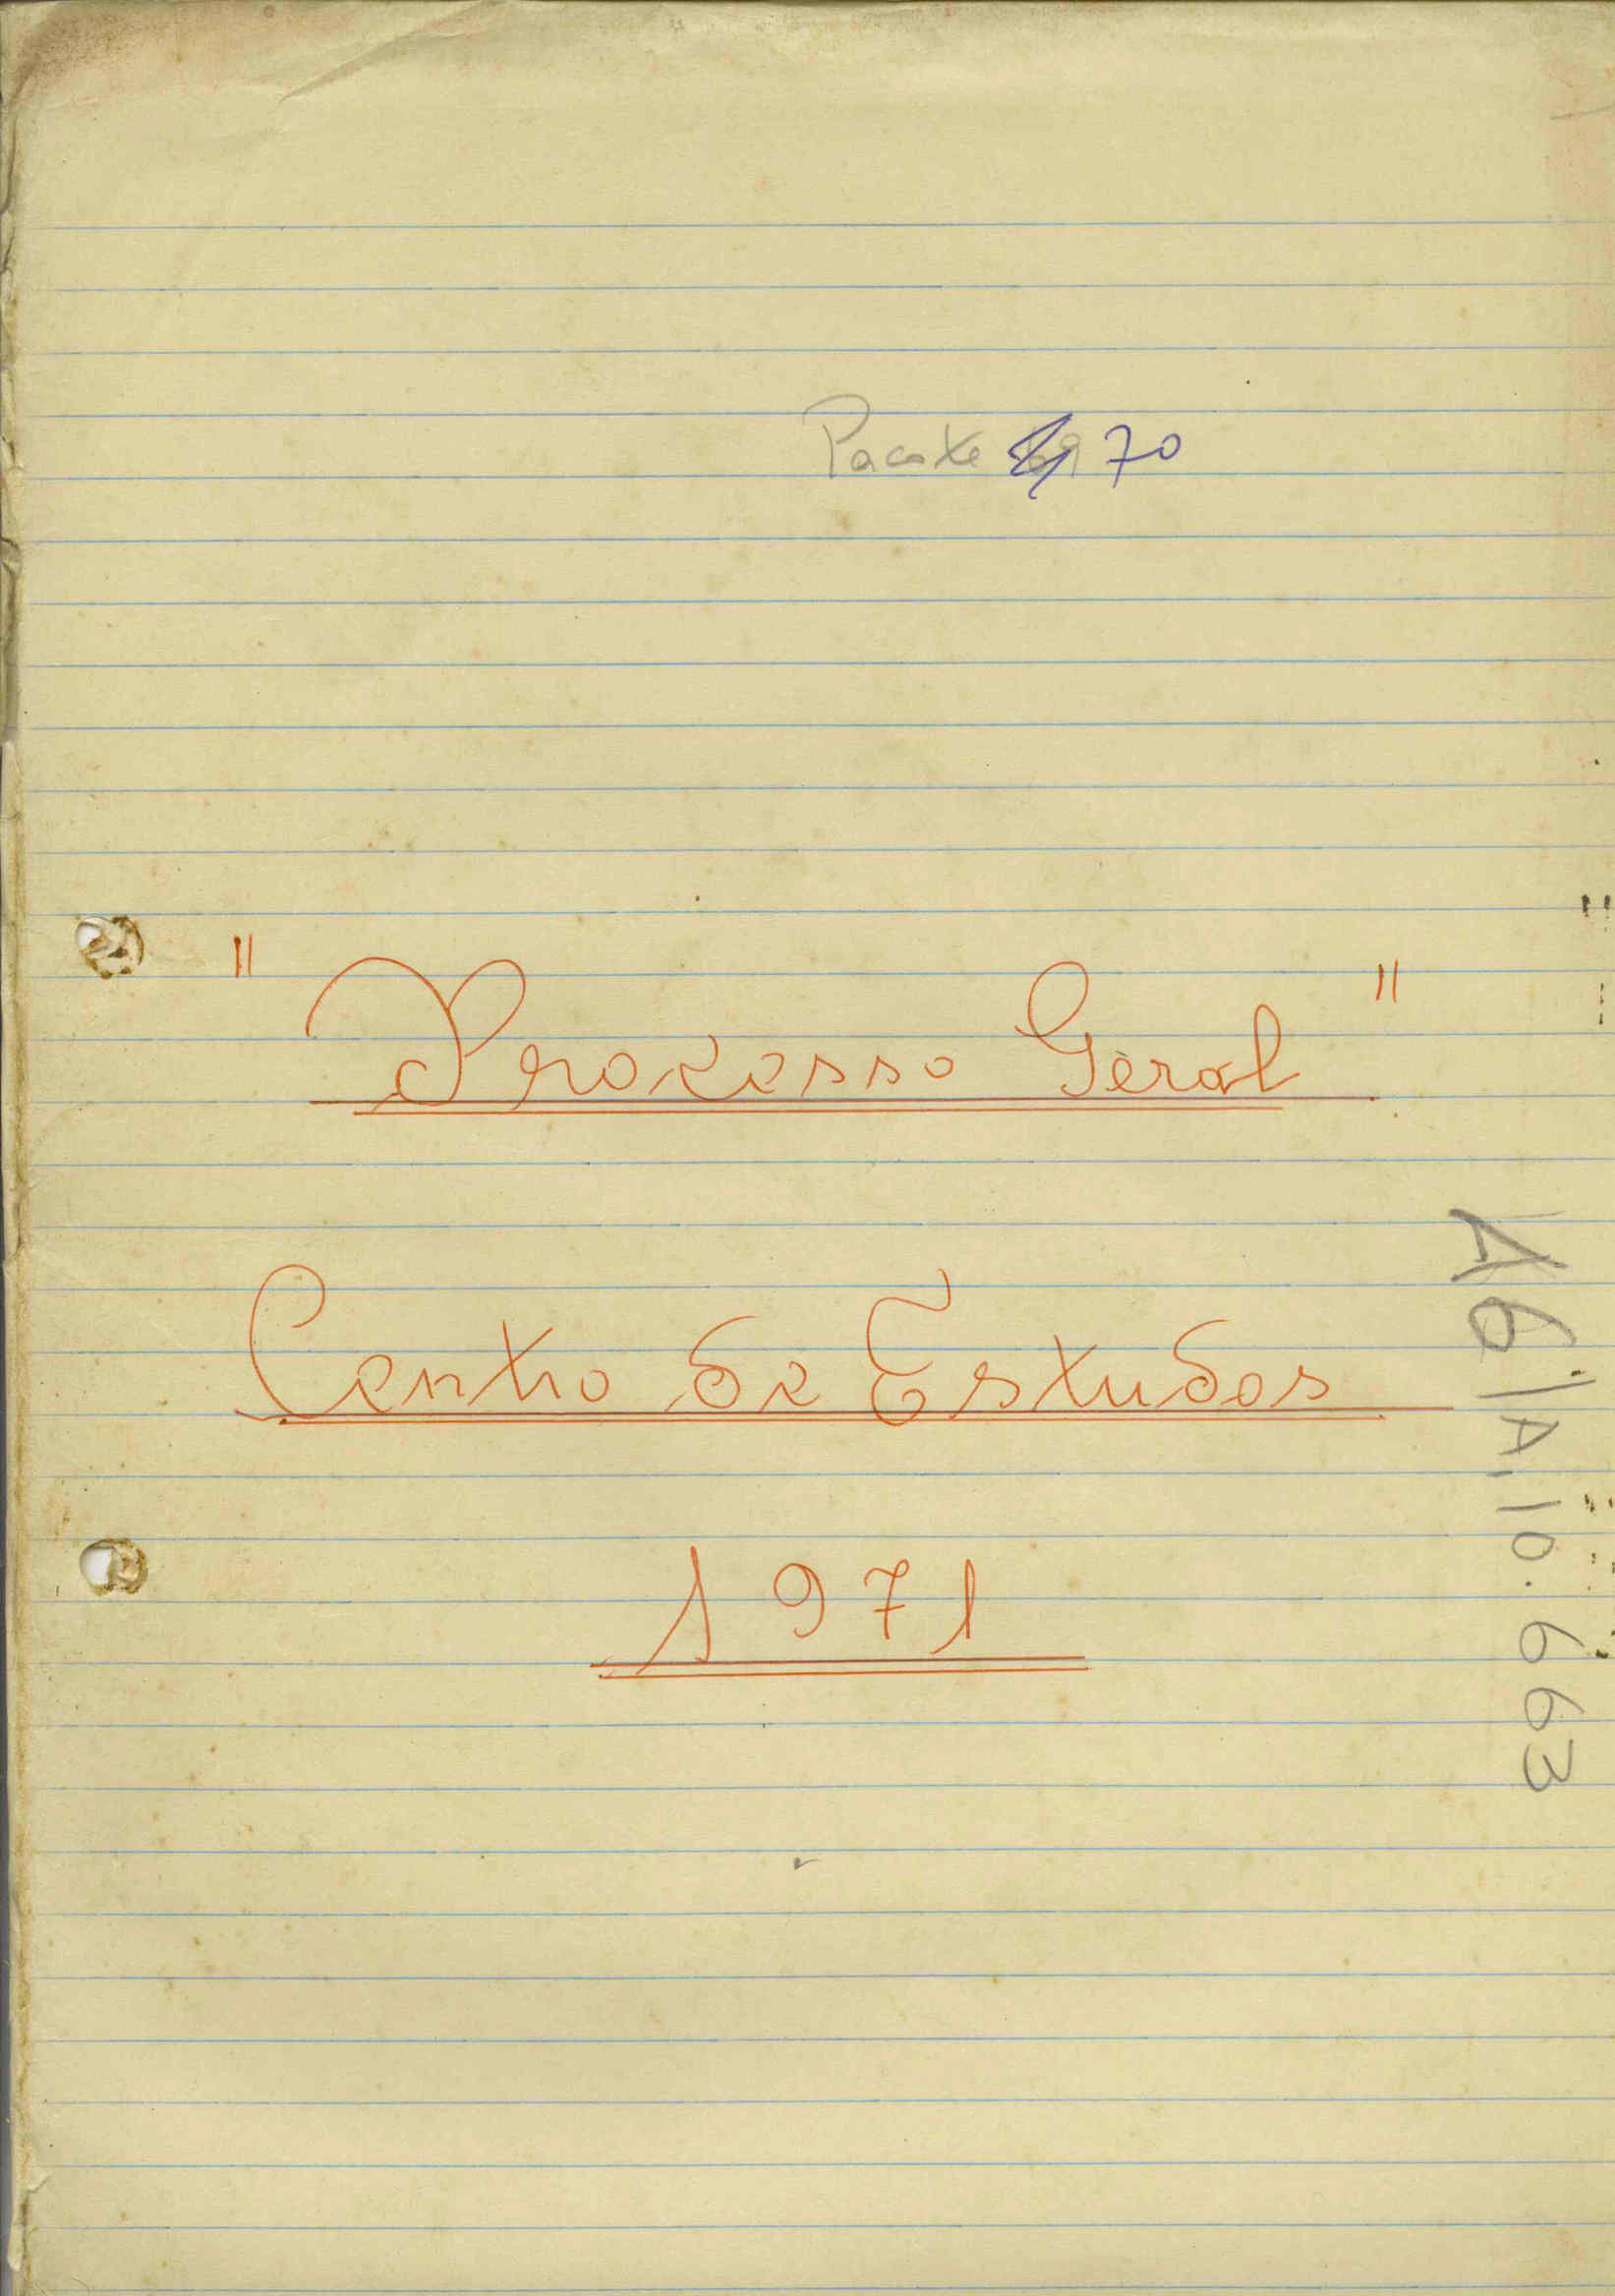 Pacote 70
"Processo Geral"
Centro de Estudos
1971
A6|A.10.663